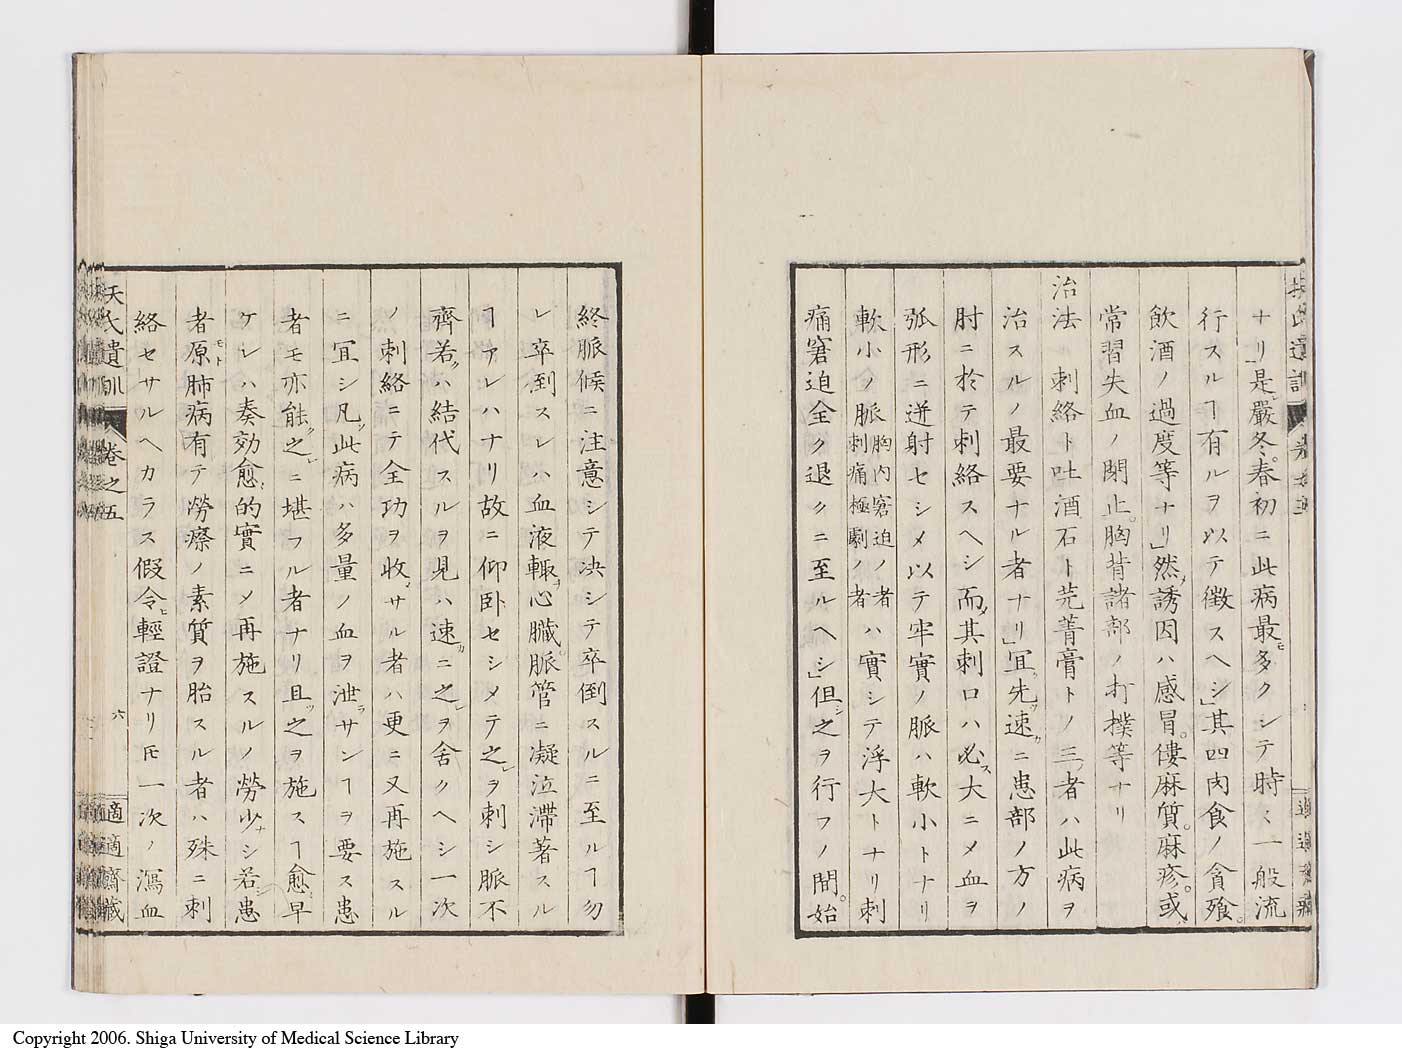 ナリ」是レ嚴冬。春初ニ此病最モ多クシテ時々一般流
行スルヿ有ルヲ以テ徴スヘシ」其四肉食ノ貪飱。
飲酒ノ過度等ナリ」然メ誘因ハ感冒。僂麻質。麻疹。或ハ
常習失血ノ閉止。胸背諸部ノ打撲等ナリ
治法 刺絡ト吐酒石ト芫菁膏トノ三ノ者ハ此病ヲ
治スルノ最要ナル者ナリ」宜ク先ツ速カニ患部ノ方ノ
肘ニ於テ刺絡スヘシ而メ其刺口ハ必ス大ニメ血ヲ
弧形ニ迸射セシメ以テ牢實ノ脈ハ軟小トナリ
軟小ノ脈胸内窘迫ノ者刺痛極劇ノ者ハ實シテ浮大トナリ刺
痛窘迫全ク退クニ至ルヘシ」但シ之ヲ行フノ間。始
終脈候ニ注意シテ决シテ卒倒スルニ至ルヿ勿
レ卒倒スレハ血液輙チ心臓。脈管ニ凝泣滯著スル
ヿアレハナリ故ニ仰卧セシメテ之レヲ刺シ脈不
齊若クハ結代スルヲ見ハ速カニ之レヲ舍クヘシ一次
ノ刺絡ニテ全功ヲ收メサル者ハ更ニ又再施スル
ニ宜シ凡ソ此病ハ多量ノ血ヲ泄ラサンヿヲ要ス患
者モ亦能ク之レニ堪フル者ナリ且ツ之ヲ施スヿ愈早
ケレハ奏効愈的實ニメ再施スルノ勞少ナシ若シ患
者原ト肺病有テ勞瘵ノ素質ヲ胎スル者ハ殊ニ刺
絡セサルヘカラス假令ヒ輕證ナリ𪜈一次ノ瀉血
天氏遺訓 卷之五 六 適適齋藏
Copyright 2006. Shiga University of Medical Science Library